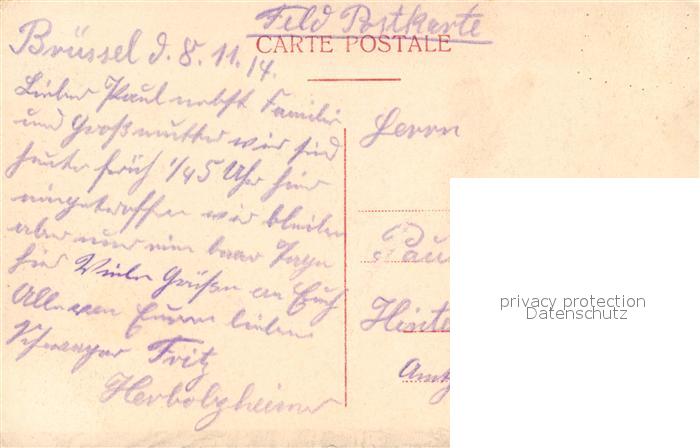 Feld Postkarte
CARTE POSTALE
Brüssel d. 8.11.14.
Lieber Paul nebst Familie
und Großmutter wir sind
heute früh 1/45 Uhr hier
eingetroffen wir bleiben
aber nur ein paar Tage
hier Viele Grüße an Euch
Alle von Euren lieben
Schwager Fritz
Herbolzheimer
Herrn
Pau
Hinte
Amts
privacy protection
Datenschutz